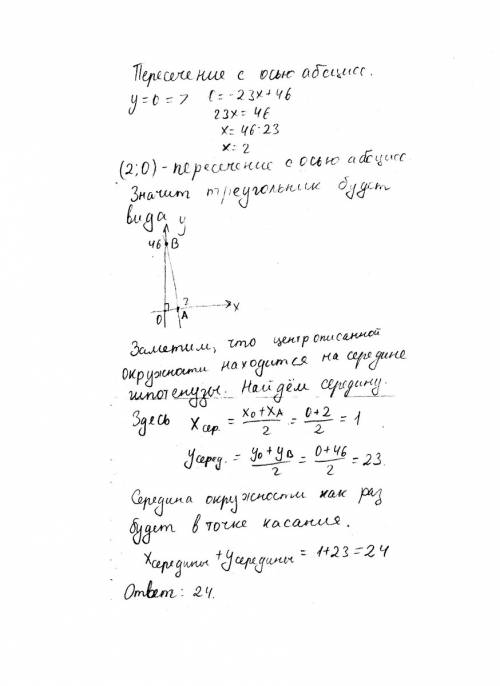 Пересечение с осью абсцисс.
y=0 => 0=-23x+46
23x=46
x=46:23
x=2
(2;0) - пересечение с осью абсцисс
Значит треугольник будет
вида
y
46 B
2
O A x
Заметим, что центр описанной
окружности находится на середине
гипотенузы. Найдём середину.
Здесь xсер. = (x0+xA)/2 = (0+2)/2 = 1
yсеред. = (y0+yB)/2 = (0+46)/2 = 23.
Середина окружности как раз
будет в точке касания.
xсередины + yсередины = 1+23=24
Ответ: 24.